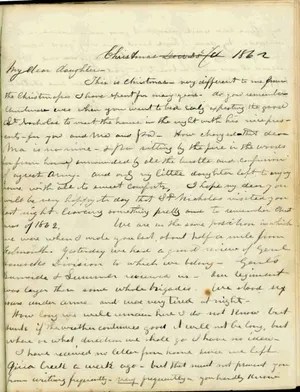 Christmas 1862
My Dear daughter
This is Christmas - very different to me from
the Christmases I have spent for many years. do you remember
Christmas was when you went to bed early expecting the good
St Nicholas to visit the house in the night with his nice pres-
ents - for you and Ma and How changed this dear
Ma is no more - & I am sitting by the fire in the woods
far from home, surrounded by all the bustle and confusion
of a great Army. and only my little daughter left to enjoy
home with all its sweet comforts, I hope my dear you
will be very happy to day that St Nicholas visited you
last night leaving something pretty some to remember Christ
mas of 1862. We are in the same position in which
we were when I wrote you last, about half a mile from
Falmouth Yesterday we had a grand review of Genl
Division to which we belong - Genls
Burnside & Sumner reviewed us. Our regiment
was larger than some whole brigades. We stood six
hours under arms and was very tired at night.
How long we will remain here I do not know but
think if the weather continues good it will not be long, but
where or what direction we shall go I have no idea.
I have received no letter from home since we left
Creek a week ago - but that must not prevent you
from writing frequently, very frequently - you hardly know